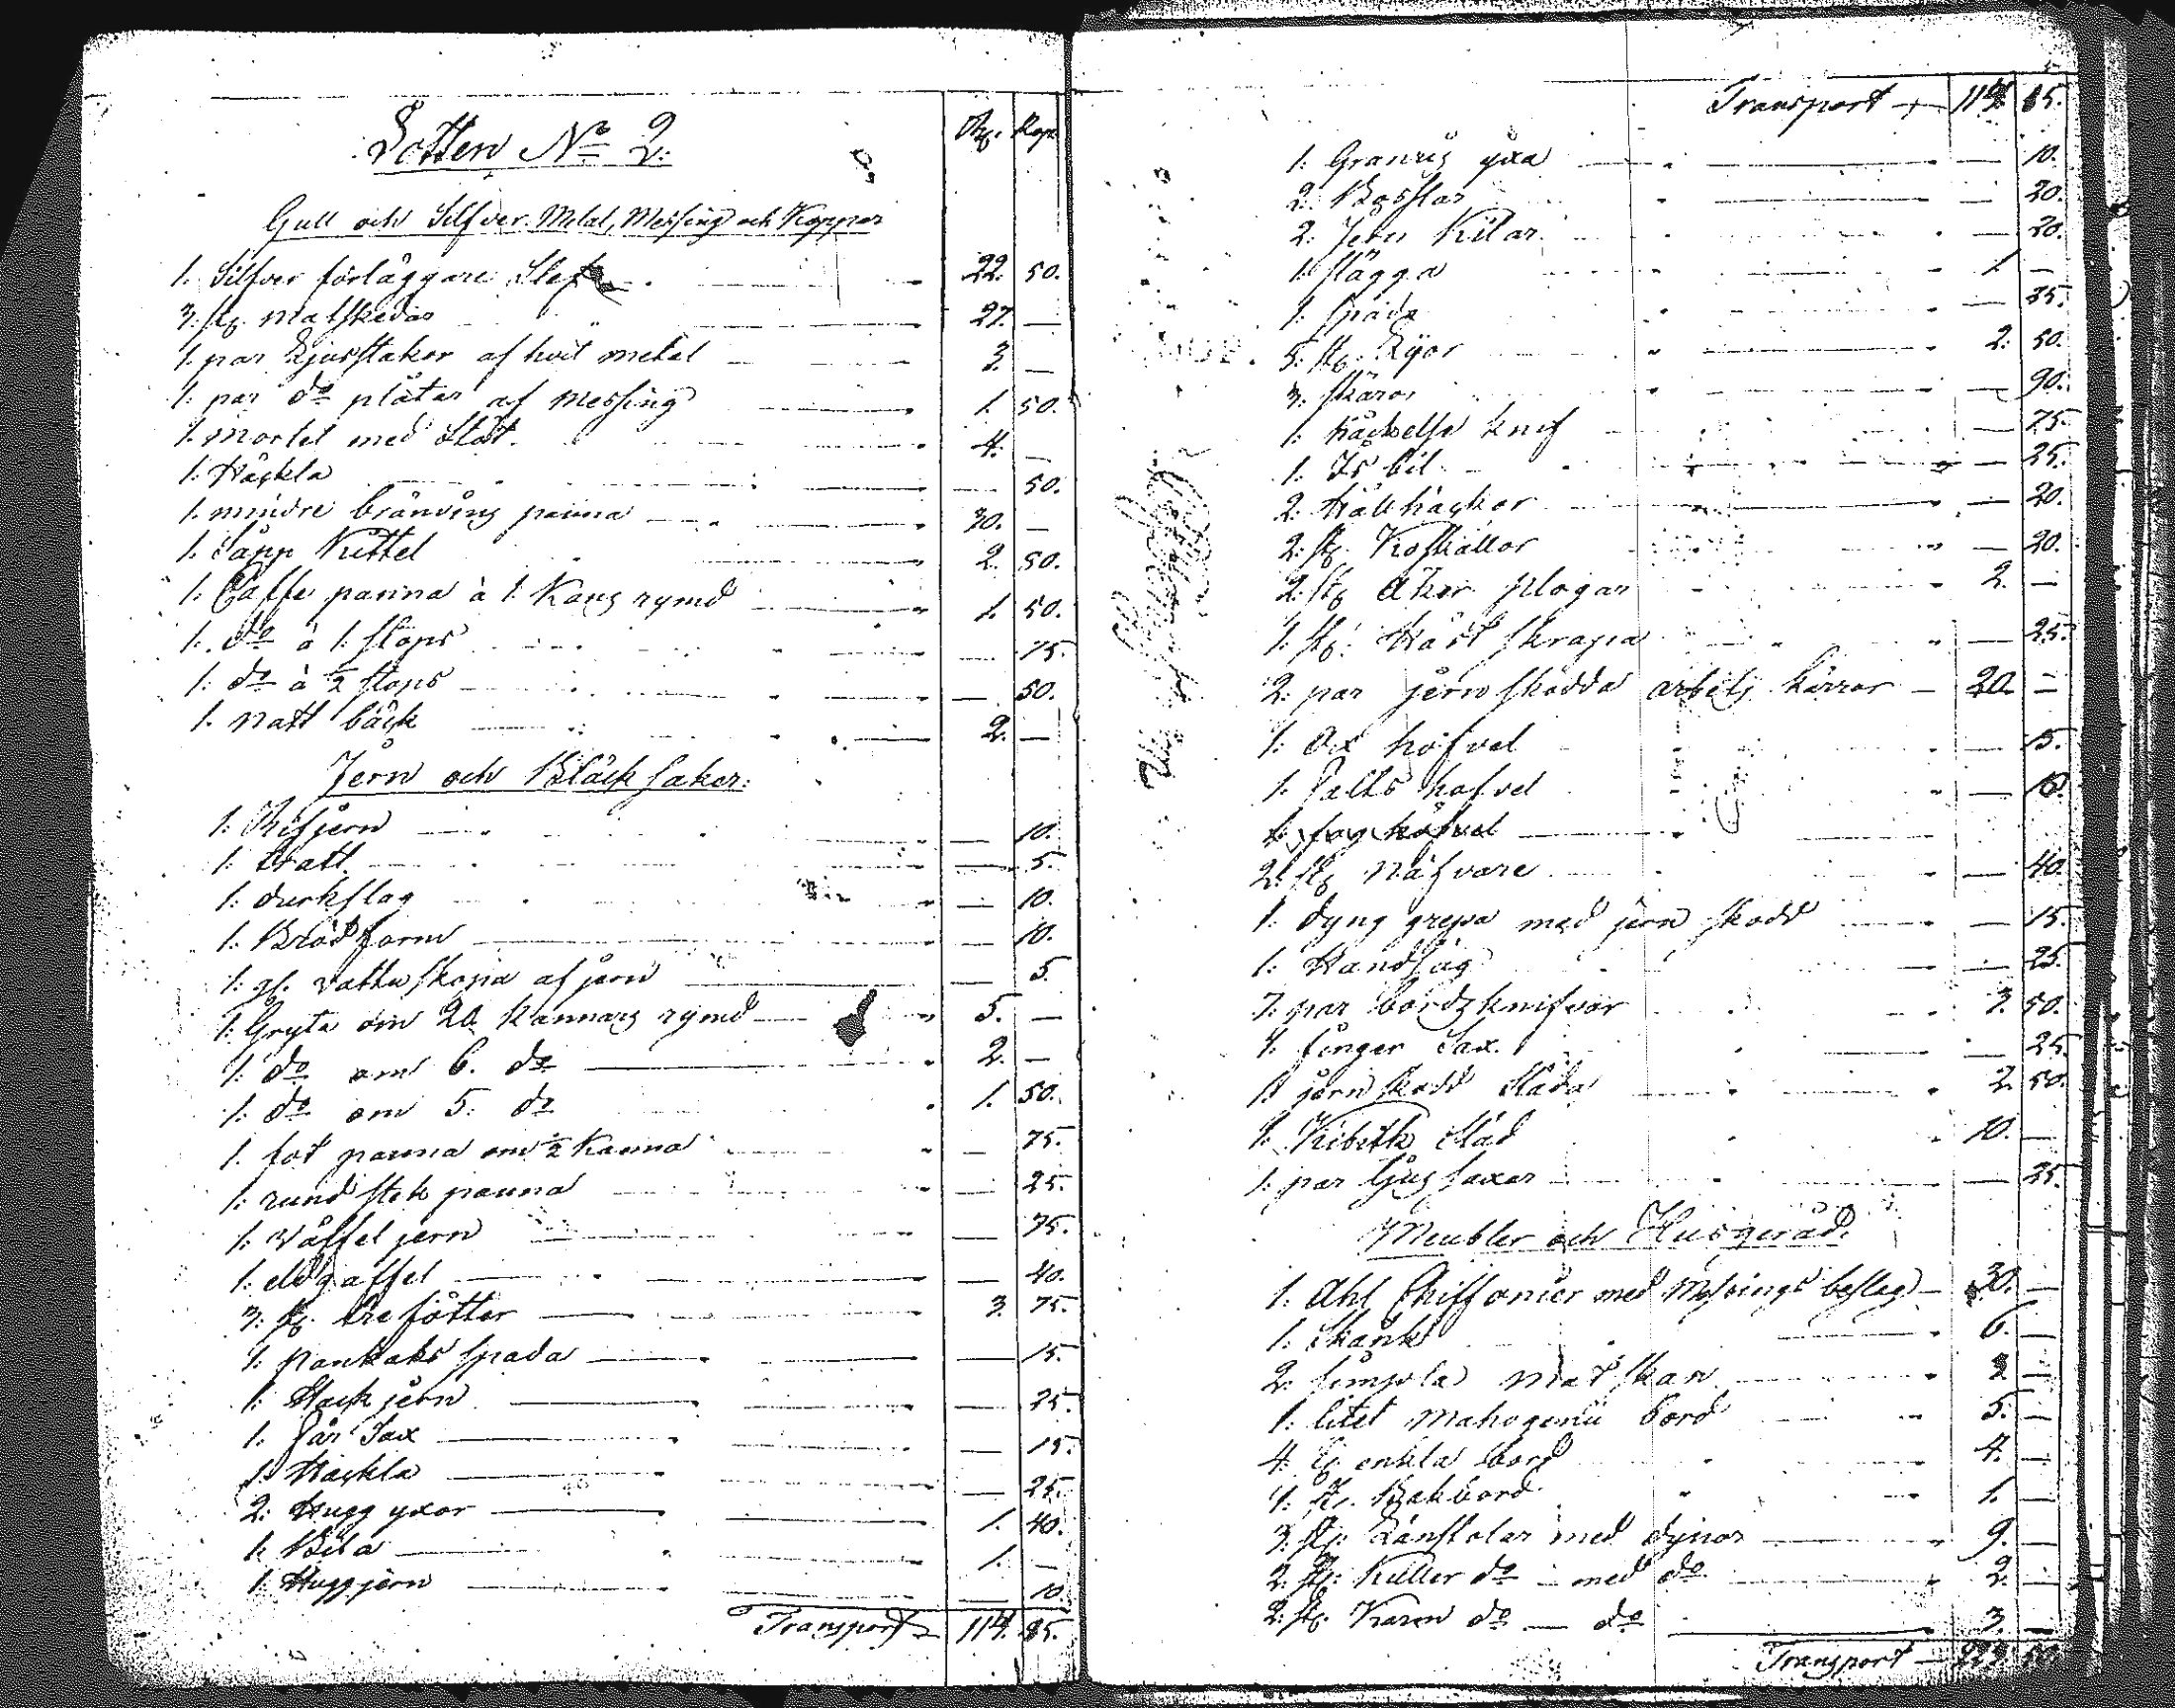 Lotten No 2.
Rub. Kop.
Gull och Silfver. Metal, Messing och Koppar
1. Silfver förläggare Slef 22. 50.
3. st. matskedar 27. —
1. par Ljusstakar af hvit metal 3. —
1. par do plåtar af messing 1. 50.
1. mortel med Stöt. 4. —
1. Häckla — 50.
1. mindre bränvins panna 30. —
1. Kittel 2. 50.
1. Caffe panna à 1. Kans rymd 1. 50.
1. do à 1. stops — 75.
1. do à ½ stops — 50.
1. natt bäck 2. —
Jern och Bläck saker:
1. Rifjern — 10.
1. tratt — 5.
1. durkslag — 10.
1. Bröd form — 10.
1. gl. vattu skopa af jern — 5.
1. Gryta om 20 kannars rymd 5. —
1. do om 6. do 2. —
1. do om 5. do 1. 50.
1. fot panna om ½ kanna — 75.
1. rund stek panna — 25.
1. våffel jern — 75.
1. eldgaffel — 40.
3. st. trefötter 3. 75.
1. pankaks spada — 15.
1. Hack jern — 25.
1. Får Sax — 15.
1. Häckla — 25.
2. Hugg yxor 1. 40.
1. Bila 1. —
1. Huggjern — 10.
Transport 114. 85.
Transport 114. 85.
1. Granris yxa — 10.
2. — 20.
2. Jern Kilar — 20.
1. slägga 1. —
1. spada — 35.
5. st. Lijor 2. 50.
3. skäror — 90.
1. hackelse knif — 75.
1. Is bil — 25.
2. — 20.
2. st. Koskällor — 20.
2. st. åker plogar 2. —
1. st. Häst skrapa — 25.
2. par jern skodda arbets kärror 20. —
1. Ox höfvel — 15.
1. Falts höfvel — 10.
1. höfvel
2. st. näfvare — 40.
1. dyng grepa med jern skodd — 15.
1. Handsåg — 25.
7. par bordsknifvar 3. 50.
1. finger Sax. — 25.
1. jern skodd Släda 2. 50.
1. Kibitk Släd 10. —
1. par ljus saxar — 25.
Meubler och Husgeråd.
1. Ahl Chiffonier med Messings beslag 30. —
1. Skänk 6. —
2. simpla mat skan 2 —
1. litet mahogenii bord 5. —
4. st. enkla bord 4. —
1. st. Bakbord 1. —
3. st. Länstolar med dynor 9. —
2. st. Killer do med do 2. —
2. st. Karm do — do 3. —
Transport 223. 50.